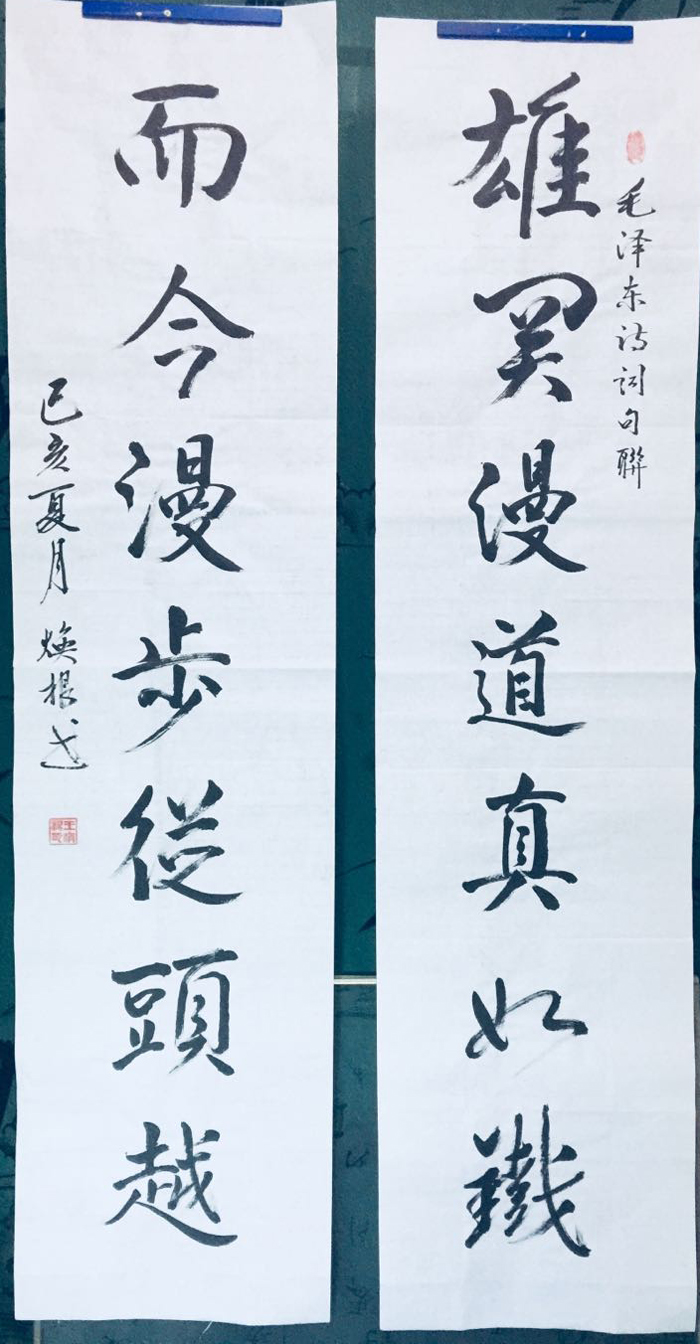 毛泽东诗词句聯
雄関漫道真如鐵
而今漫步從頭越
己亥夏月 焕根书